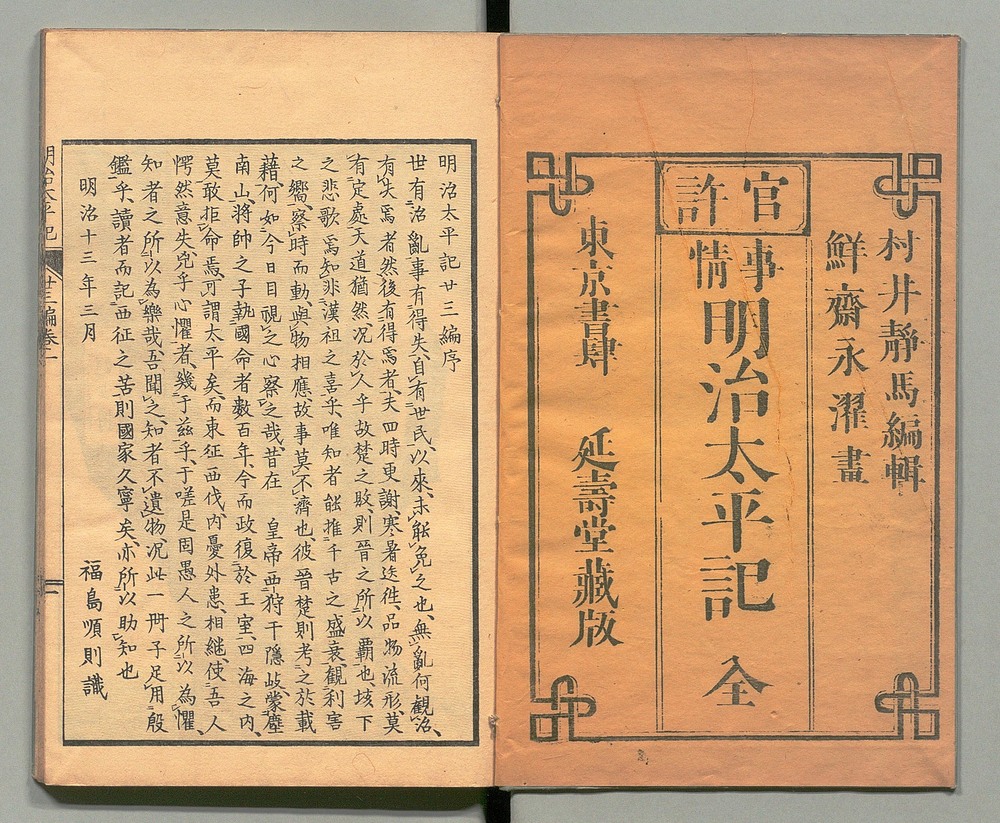 村井靜馬編輯
鮮齋永濯畫
官許
事情
明治太平記 全
東京書肆 延壽堂藏版
明治太平記廿三編序
世有治亂事有得失自有世民以來未能免之也無亂何觀治
有失焉者然後有得焉者夫四時更謝寒暑迭徃品物流形莫
有定處天道猶然况於人乎故楚之敗則晉之所以覇也垓下
之悲歌焉知非漢祖之喜乎唯知者能推千古之盛衰觀利害
之嚮察時而動與物相應故事莫不濟也彼晉楚則考之於載
藉何如今日目視之心察之哉昔在 皇帝西狩干隱岐蒙塵
南山將帥之子執國命者數百年今而政復於王室四海之内
莫敢拒命焉可謂太平矣而東征西伐内憂外患相継使吾人
愕然意失兇乎心懼者幾于兹乎于嗟是固愚人之所以為懼
知者之所以為樂哉吾聞之知者不遺物况此一冊子足用殷
鑑乎讀者而記西征之苦則國家久寧矣亦所以助知也
明治十三年三月
福島順則識
明治太平記 廿三編卷一